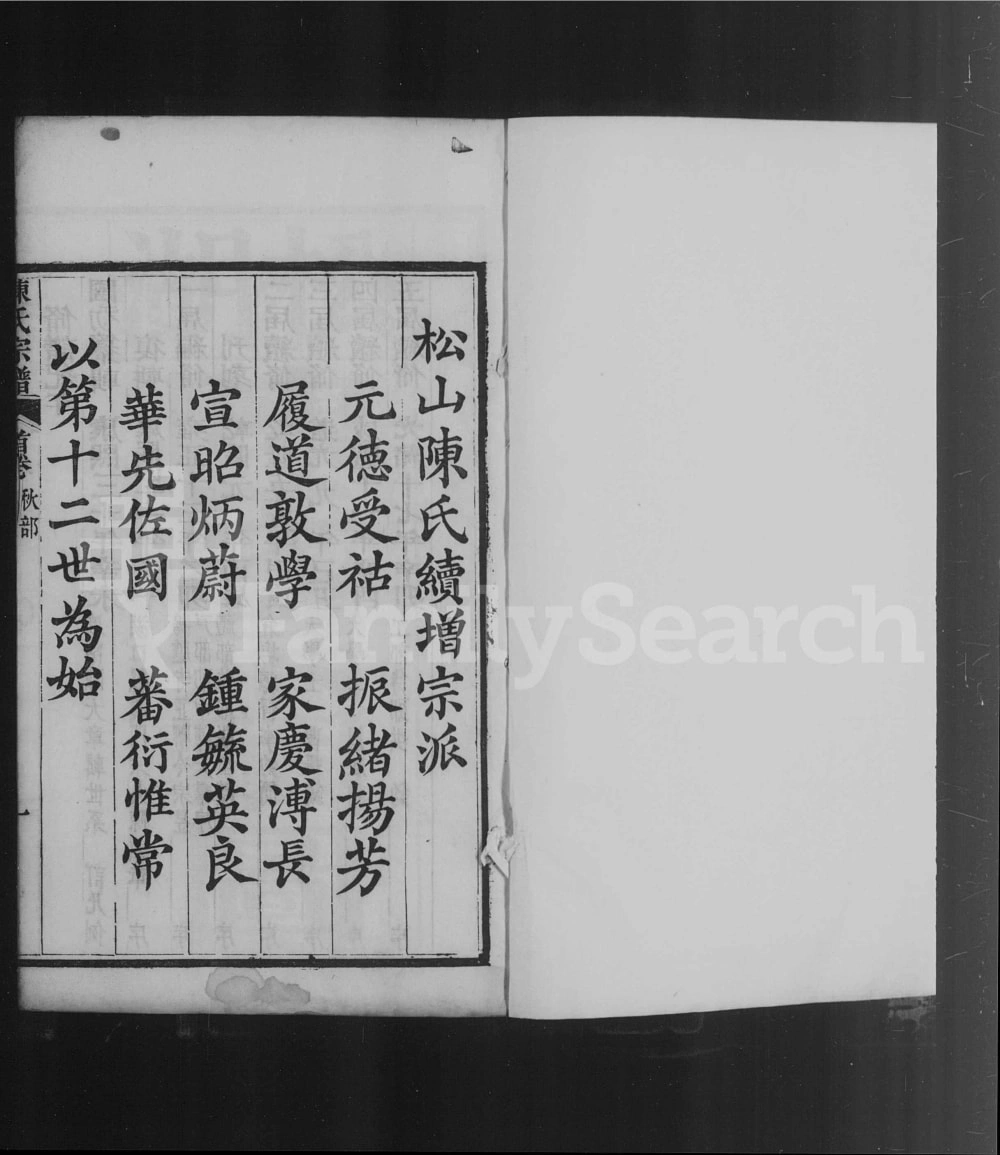 松山陳氏續增宗派
元德受祜 振緒揚芳
履道敦學 家慶溥長
宣昭炳蔚 鍾毓英良
華先佐國 蕃衍惟常
以第十二世為始
陳氏宗譜 首卷 秋部
FamilySearch